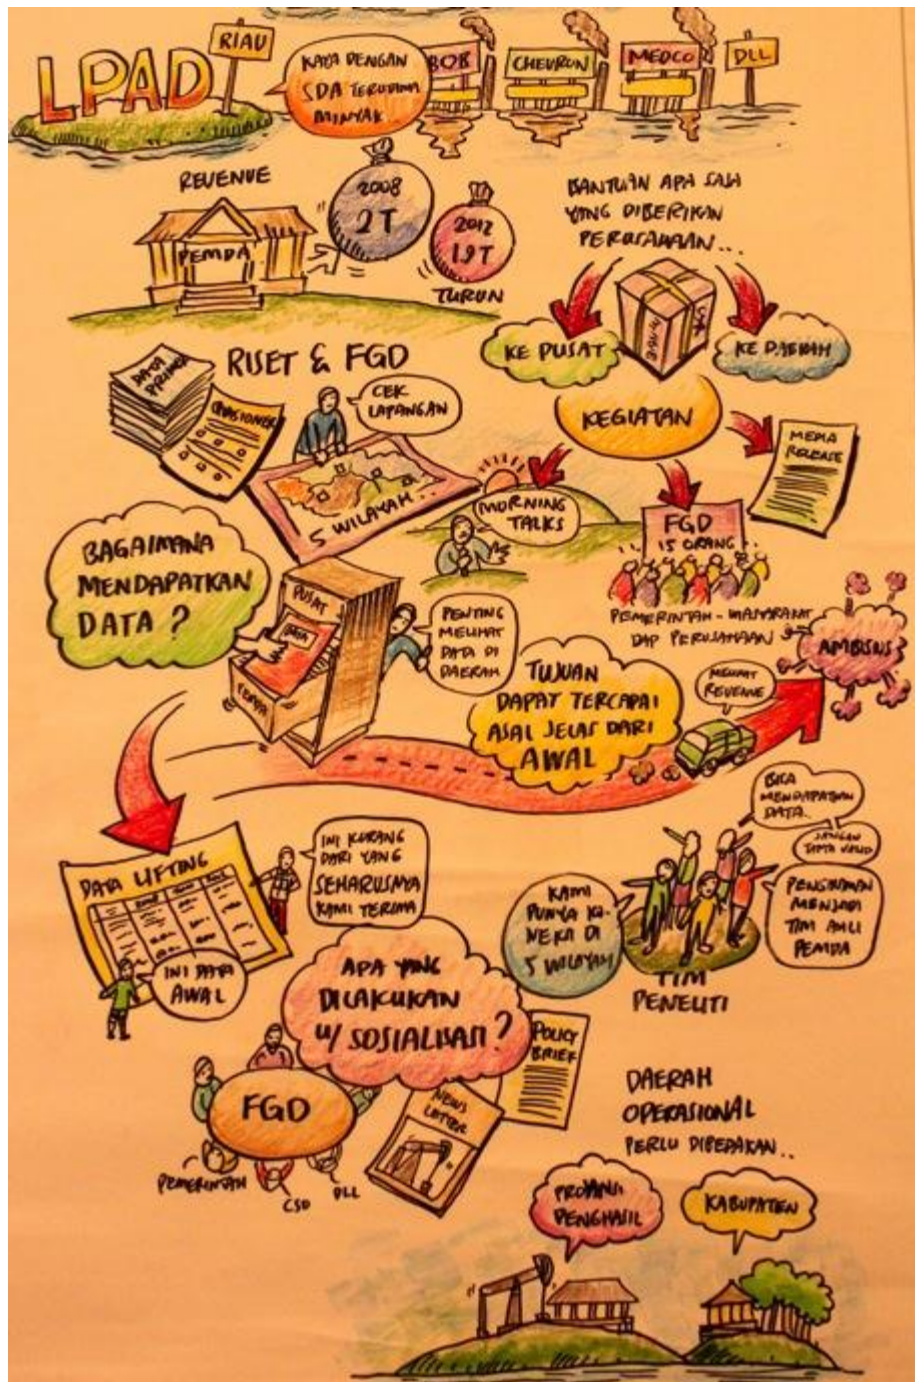 LPAD
RIAU
KAYA DENGAN
SDA TERUTAMA
MINYAK
BOB
CHEVRON
MEDCO
DLL
REVENUE
PEMDA
2008
2T
2012
1,9T
TURUN
BANTUAN APA SAJA
YANG DIBERIKAN
PERUSAHAAN...
KE PUSAT
KE DAERAH
RISET & FGD
DATA
PRIMER
KUESIONER
CEK
LAPANGAN
5 WILAYAH...
KEGIATAN
MORNING
TALKS
FGD
15 ORANG
MEDIA
RELEASE
PEMERINTAH - MASYARAKAT
DAN PERUSAHAAN
AMBISIUS
BAGAIMANA
MENDAPATKAN
DATA?
PUSAT
DATA
PENTING
MELIHAT
DATA DI
DAERAH
TUJUAN
DAPAT TERCAPAI
ASAL JELAS DARI
AWAL
REVENUE
DATA LIFTING
INI KURANG
DARI YANG
SEHARUSNYA
KAMI TERIMA
INI DATA
AWAL
BISA
MENDAPATKAN
DATA..
KAMI
PUNYA KO-
NEKSI DI
5 WILAYAH
MENJADI
TIM AHLI
PEMDA
TIM
PENELITI
APA YANG
DILAKUKAN
U/ SOSIALISASI?
POLICY
BRIEF
NEWS
LETTER
FGD
PEMERINTAH
CSO
DLL
DAERAH
OPERASIONAL
PERLU DIBEDAKAN..
PROVINSI
PENGHASIL
KABUPATEN